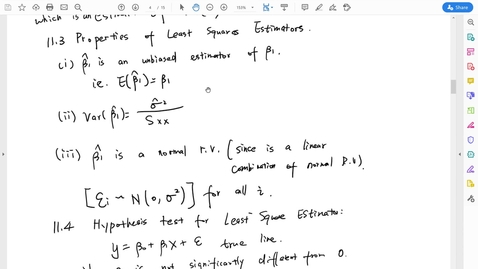 which is an
11.3 Properties of Least Squares Estimators.
(i) β̂₁ is an unbiased estimator of β₁.
ie. E(β̂₁) = β₁
(ii) Var(β̂₁) = σ̂² / Sxx
(iii) β̂₁ is a normal r.v. (since is a linear
combination of normal R.V).
[εi ~ N(0, σ²)] for all i.
11.4 Hypothesis test for Least Square Estimator:
y = β₀ + β₁x + ε true line.
is not significantly different from 0.